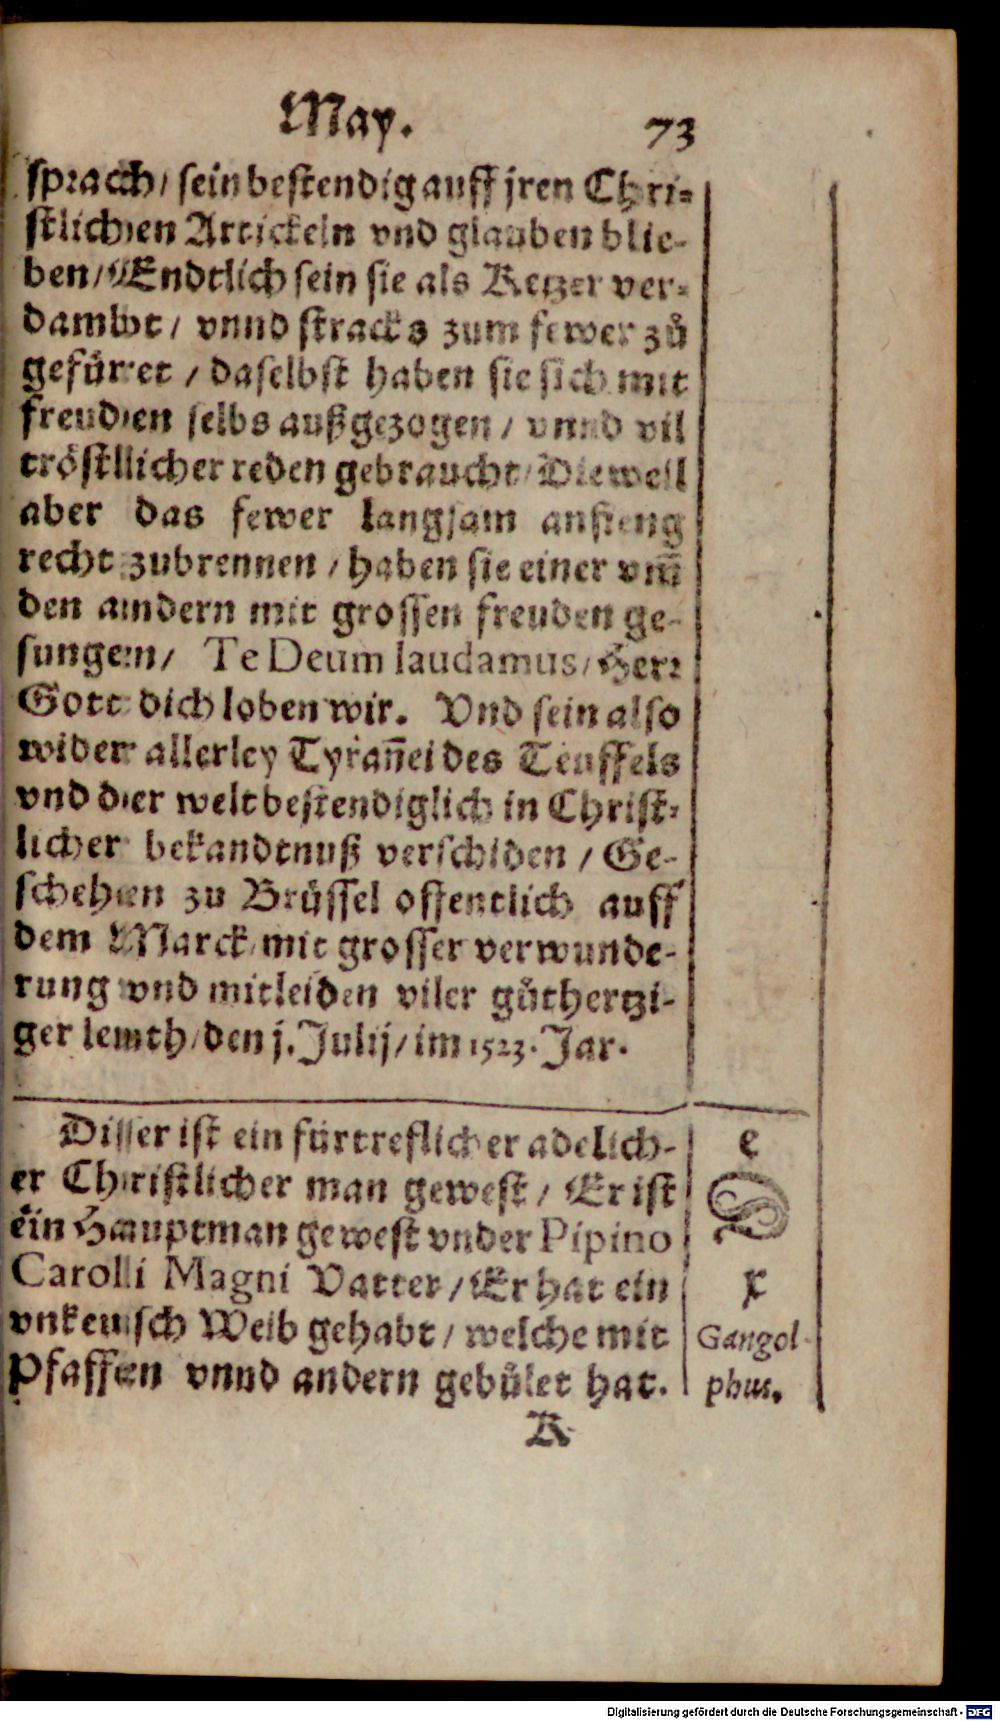 May. 73
sprach / sein bestendig auff jren Chri-
stlichen Artickeln vnd glauben blie-
ben / Endtlich sein sie als Ketzer ver-
dambt / vnnd stracks zum fewer zů
gefürret / daselbst haben sie sich mit
freuden selbs außgezogen / vnnd vil
tröstlicher reden gebraucht / Dieweil
aber das fewer langsam anfieng
recht zubrennen / haben sie einer vm̃
den andern mit grossen freuden ge-
sungen / Te Deum laudamus / Herr
Gott dich loben wir. Vnd sein also
wider allerley Tyran̄ei des Teuffels
vnd der welt bestendiglich in Christ-
licher bekandtnuß verschiden / Ge-
schehen zu Brüssel offentlich auff
dem Marck mit grosser verwunde-
rung vnd mitleiden viler gůthertzi-
ger leuth / den j. Julij / im 1523. Jar.
Diser ist ein fürtreflicher adelich-
er Christlicher man gewest / Er ist
ein Hauptman gewest vnder Pipino
Carolli Magni Vatter / Er hat ein
vnkeusch Weib gehabt / welche mit
Pfaffen vnnd andern gebůlet hat.
e
x
Gangol-
phus.
K
Digitalisierung gefördert durch die Deutsche Forschungsgemeinschaft - DFG